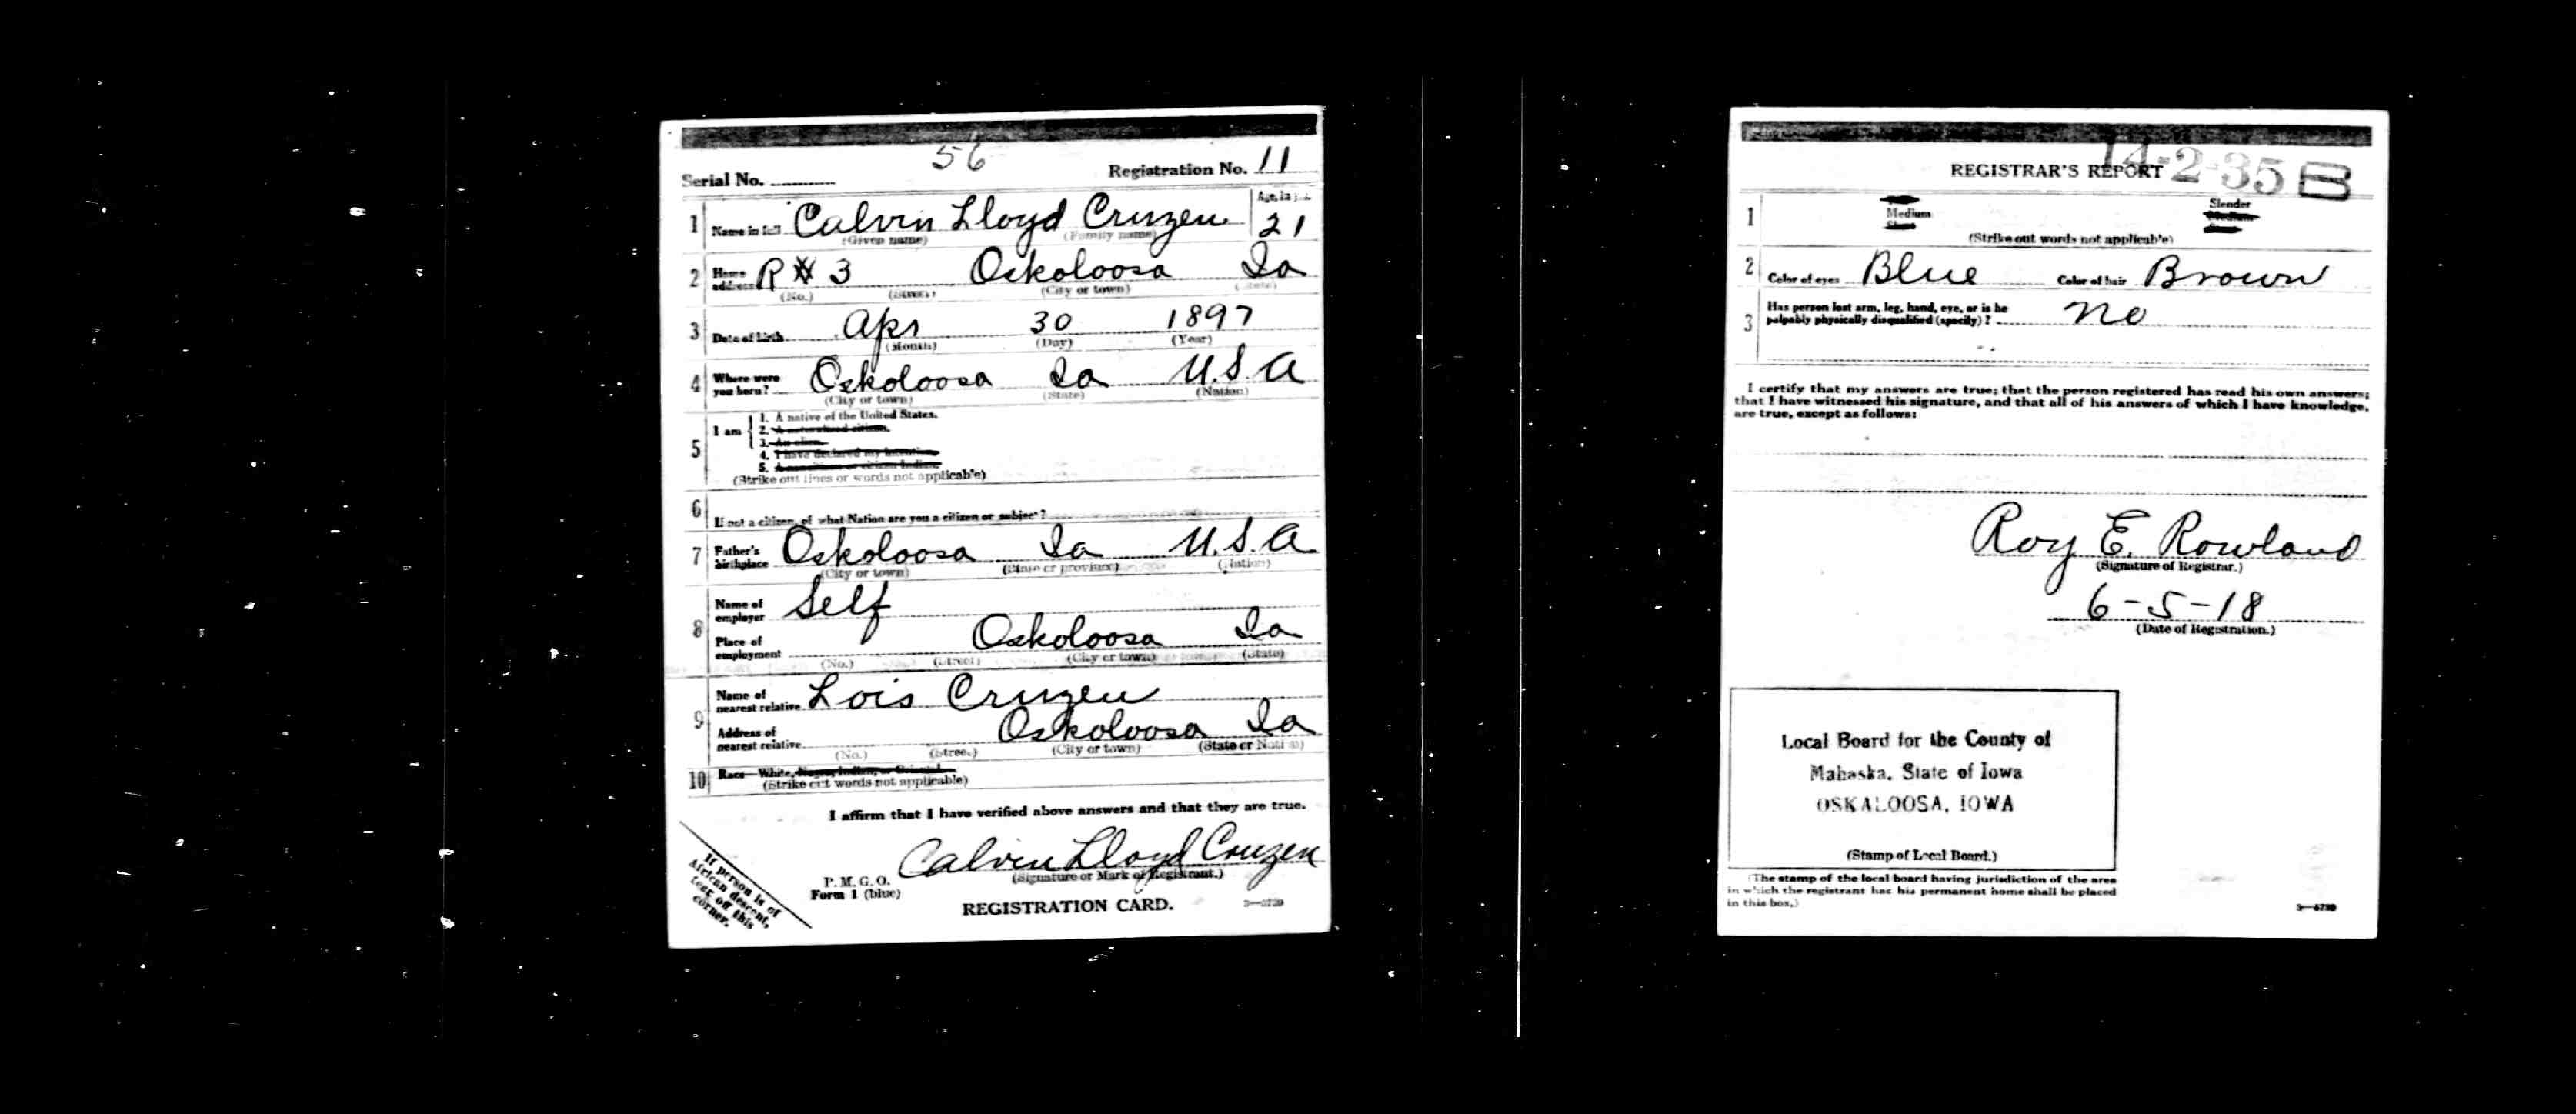 56
Serial No. Registration No. 11
1 Name in full Calvin Lloyd Cruzen Age, in 21
(Given name) (Family name)
2 Home address R # 3 Oskoloosa Ia
(No.) (Street) (City or town) (State)
3 Date of birth Apr 30 1897
(Month) (Day) (Year)
4 Where were you born? Oskoloosa Ia U.S.A
(City or town) (State) (Nation)
5 I am
1. A native of the United States.
2. A naturalized citizen.
3. An alien.
4. I have declared my intention
5. A noncitizen or citizen Indian.
(Strike out lines or words not applicable)
6 If not a citizen, of what Nation are you a citizen or subject?
7 Father's birthplace Oskoloosa Ia U.S.A
(City or town) (State or province) (Nation)
8 Name of employer Self
Place of employment Oskoloosa Ia
(No.) (Street) (City or town) (State)
9 Name of nearest relative Lois Cruzen
Address of nearest relative Oskoloosa Ia
(No.) (Street) (City or town) (State or Nation)
10 Race—White, Negro, Indian, or Oriental
(Strike out words not applicable)
I affirm that I have verified above answers and that they are true.
Calvin Lloyd Cruzen
(Signature or Mark of Registrant.)
P. M. G. O.
Form 1 (blue)
REGISTRATION CARD.
If person is of
African descent,
tear off this
corner.
14-2-35 B
REGISTRAR'S REPORT
1 Medium Slender
(Strike out words not applicable)
2 Color of eyes Blue Color of hair Brown
3 Has person lost arm, leg, hand, eye, or is he
palpably physically disqualified (specify)? no
I certify that my answers are true; that the person registered has read his own answers;
that I have witnessed his signature, and that all of his answers of which I have knowledge,
are true, except as follows:
Roy E. Rowland
(Signature of Registrar.)
6-5-18
(Date of Registration.)
Local Board for the County of
Mahaska, State of Iowa
OSKALOOSA, IOWA
(Stamp of Local Board.)
(The stamp of the local board having jurisdiction of the area
in which the registrant has his permanent home shall be placed
in this box.)